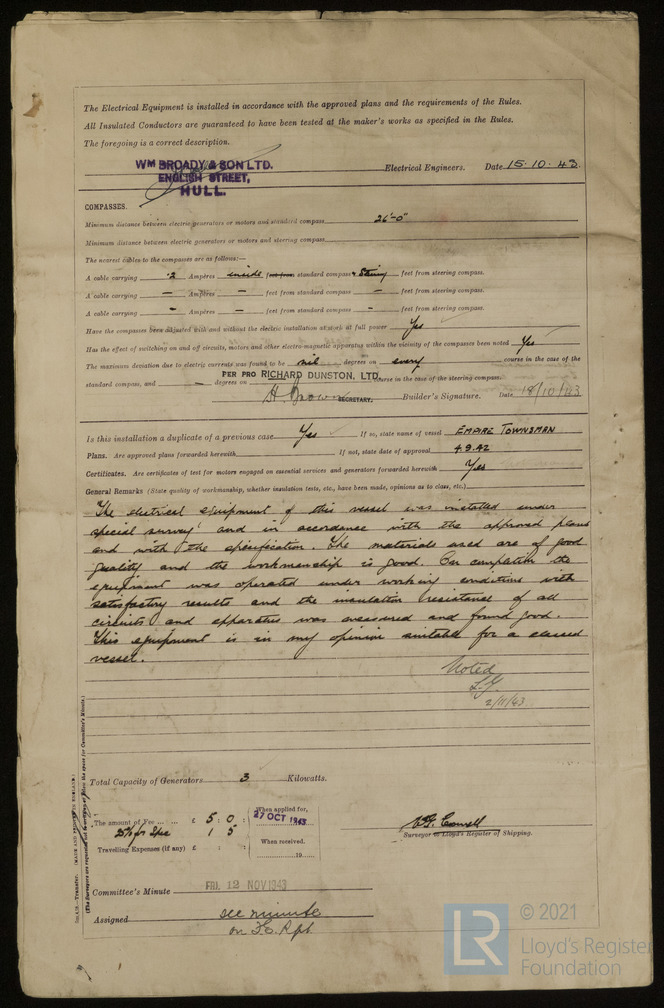 The Electrical Equipment is installed in accordance with the approved plans and the requirements of the Rules.
All Insulated Conductors are guaranteed to have been tested at the maker's works as specified in the Rules.
The foregoing is a correct description.
WM BROADY & SON LTD.
ENGLISH STREET,
HULL.
Electrical Engineers. Date 15.10.43.
COMPASSES.
Minimum distance between electric generators or motors and standard compass 26'-0"
Minimum distance between electric generators or motors and steering compass
The nearest cables to the compasses are as follows:—
A cable carrying .2 Ampères inside feet from standard compass & Steering feet from steering compass.
A cable carrying – Ampères – feet from standard compass – feet from steering compass.
A cable carrying – Ampères – feet from standard compass – feet from steering compass.
Have the compasses been adjusted with and without the electric installation at work at full power Yes
Has the effect of switching on and off circuits, motors and other electro-magnetic apparatus within the vicinity of the compasses been noted Yes
The maximum deviation due to electric currents was found to be nil degrees on every course in the case of the
standard compass, and – degrees on course in the case of the steering compass.
PER PRO RICHARD DUNSTON, LTD.
H. Brown SECRETARY. Builder's Signature. Date 18/10/43
Is this installation a duplicate of a previous case Yes If so, state name of vessel EMPIRE TOWNSMAN
Plans. Are approved plans forwarded herewith If not, state date of approval 4.9.42
Certificates. Are certificates of test for motors engaged on essential services and generators forwarded herewith Yes
General Remarks (State quality of workmanship, whether insulation tests, etc., have been made, opinions as to class, etc.)
The electrical equipment of this vessel was installed under
special survey and in accordance with the approved plans
and with the specification. The materials used are of good
quality and the workmanship is good. On completion the
equipment was operated under working conditions with
satisfactory results and the insulation resistance of all
circuits and apparatus was measured and found good.
This equipment is in my opinion suitable for a classed
vessel.
Noted
2/11/43
Total Capacity of Generators 3 Kilowatts.
The amount of Fee ... ... £ 5 : 0 :
25% for Spec 1 5
Travelling Expenses (if any) £ : :
When applied for,
27 OCT 1943
When received.
19
Surveyor to Lloyd's Register of Shipping.
Committee's Minute FRI. 12 NOV 1943
Assigned see minute
on F.E. Rpt.
(MADE AND PRINTED IN ENGLAND.)
(The Surveyors are requested not to write on or below the space for Committee's Minute.)
LR
© 2021
Lloyd's Register
Foundation